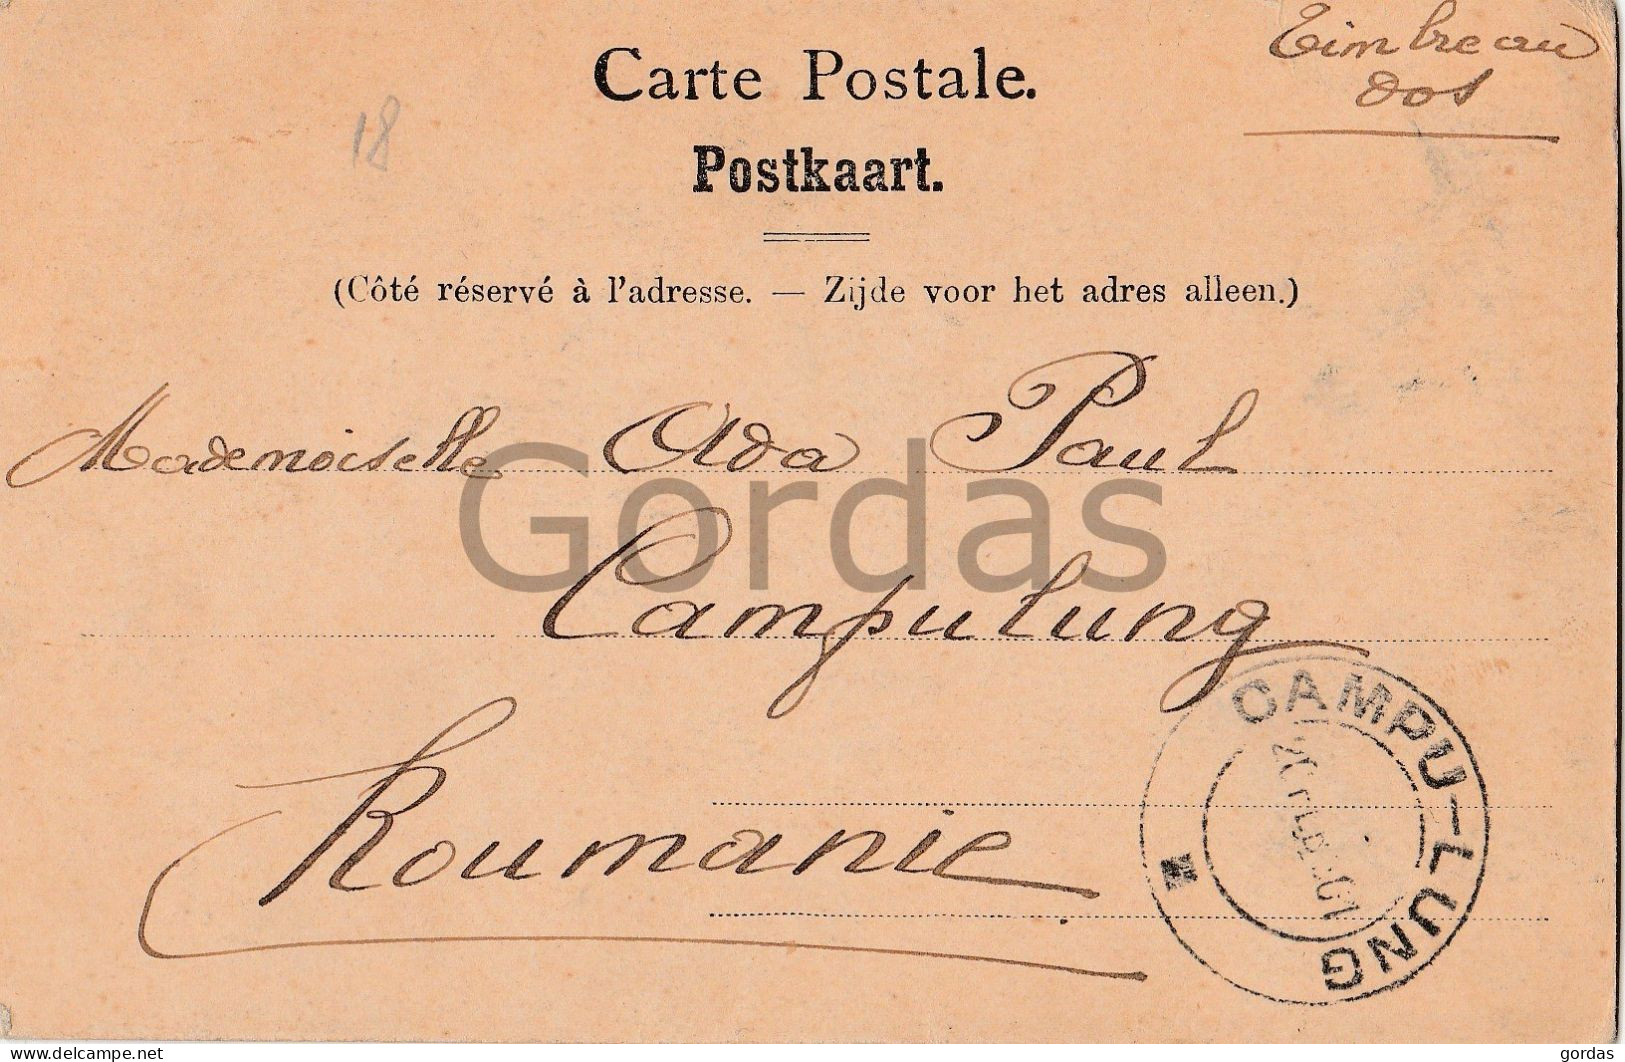 Timbre au
dos
Carte Postale.
18
Postkaart.
(Côté réservé à l'adresse. — Zijde voor het adres alleen.)
Mademoiselle Ada Paul
Gordas
Campulung
Roumanie
CAMPU-LUNG
www.delcampe.net
gordas